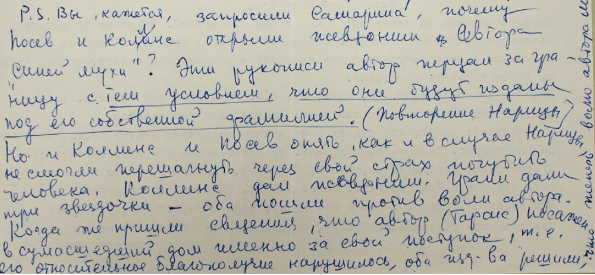 P.S. Вы, кажется, запросили Самарина, почему
Посев и Коллинс открыли псевдоним Автора
"Синей мухи"? Эти рукописи автор передал за гра-
ницу с тем условием, что они будут изданы
под его собственной фамилией. (Повторение Нарицы)
Но и Коллинс и Посев опять, как и в случае Нарицы,
не смогли перешагнуть через свой страх погубить
человека. Коллинс дал псевдоним. Грани дали
три звездочки – оба пошли против воли автора.
Когда же пришли сведения, что автор (Тарсис) посажен
в сумасшедший дом именно за свой поступок, т.е.
его относительное благополучие нарушилось, оба изд-ва решили,
что теперь волю автора